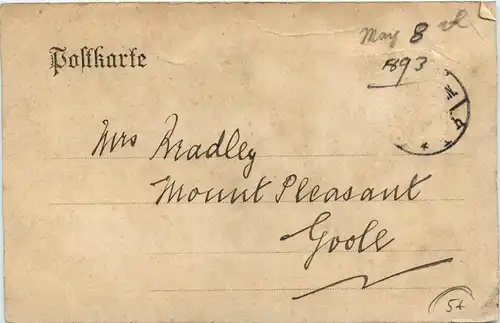 May 8
1893
Postkarte
Mrs Bradley
Mount Pleasant
Goole